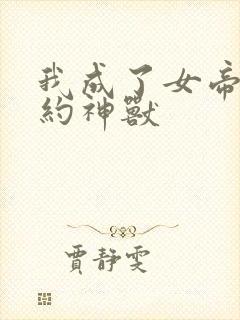 我成了女帝
約神獸
賈靜雯